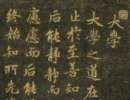 大學
大學之道在
止於至善知
后能靜靜而
慮慮而后能
終始知所先